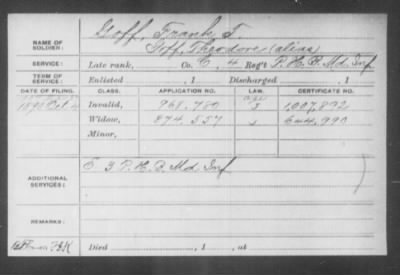 NAME OF SOLDIER: Goff, Frank T.
Goff, Theodore (alias)
SERVICE: Late rank, Co. C, 4 Reg't P.H.B. Md. Inf
TERM OF SERVICE: Enlisted , 1 Discharged , 1
DATE OF FILING. CLASS. APPLICATION NO. LAW. CERTIFICATE NO.
Oct Invalid, 968,780 1,007,892
Widow, 874,557 644,990
Minor,
ADDITIONAL SERVICES: E 3 P.H.B. Md. Inf
REMARKS:
Died , 1 , at